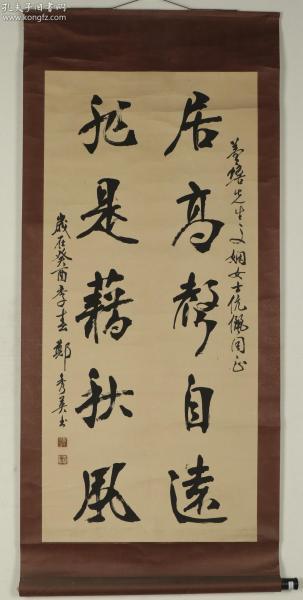 孔夫子旧书网
www.kongfz.com
先生文娴女士伉俪同正
居高声自远
非是藉秋风
岁在癸酉季春郑秀英书